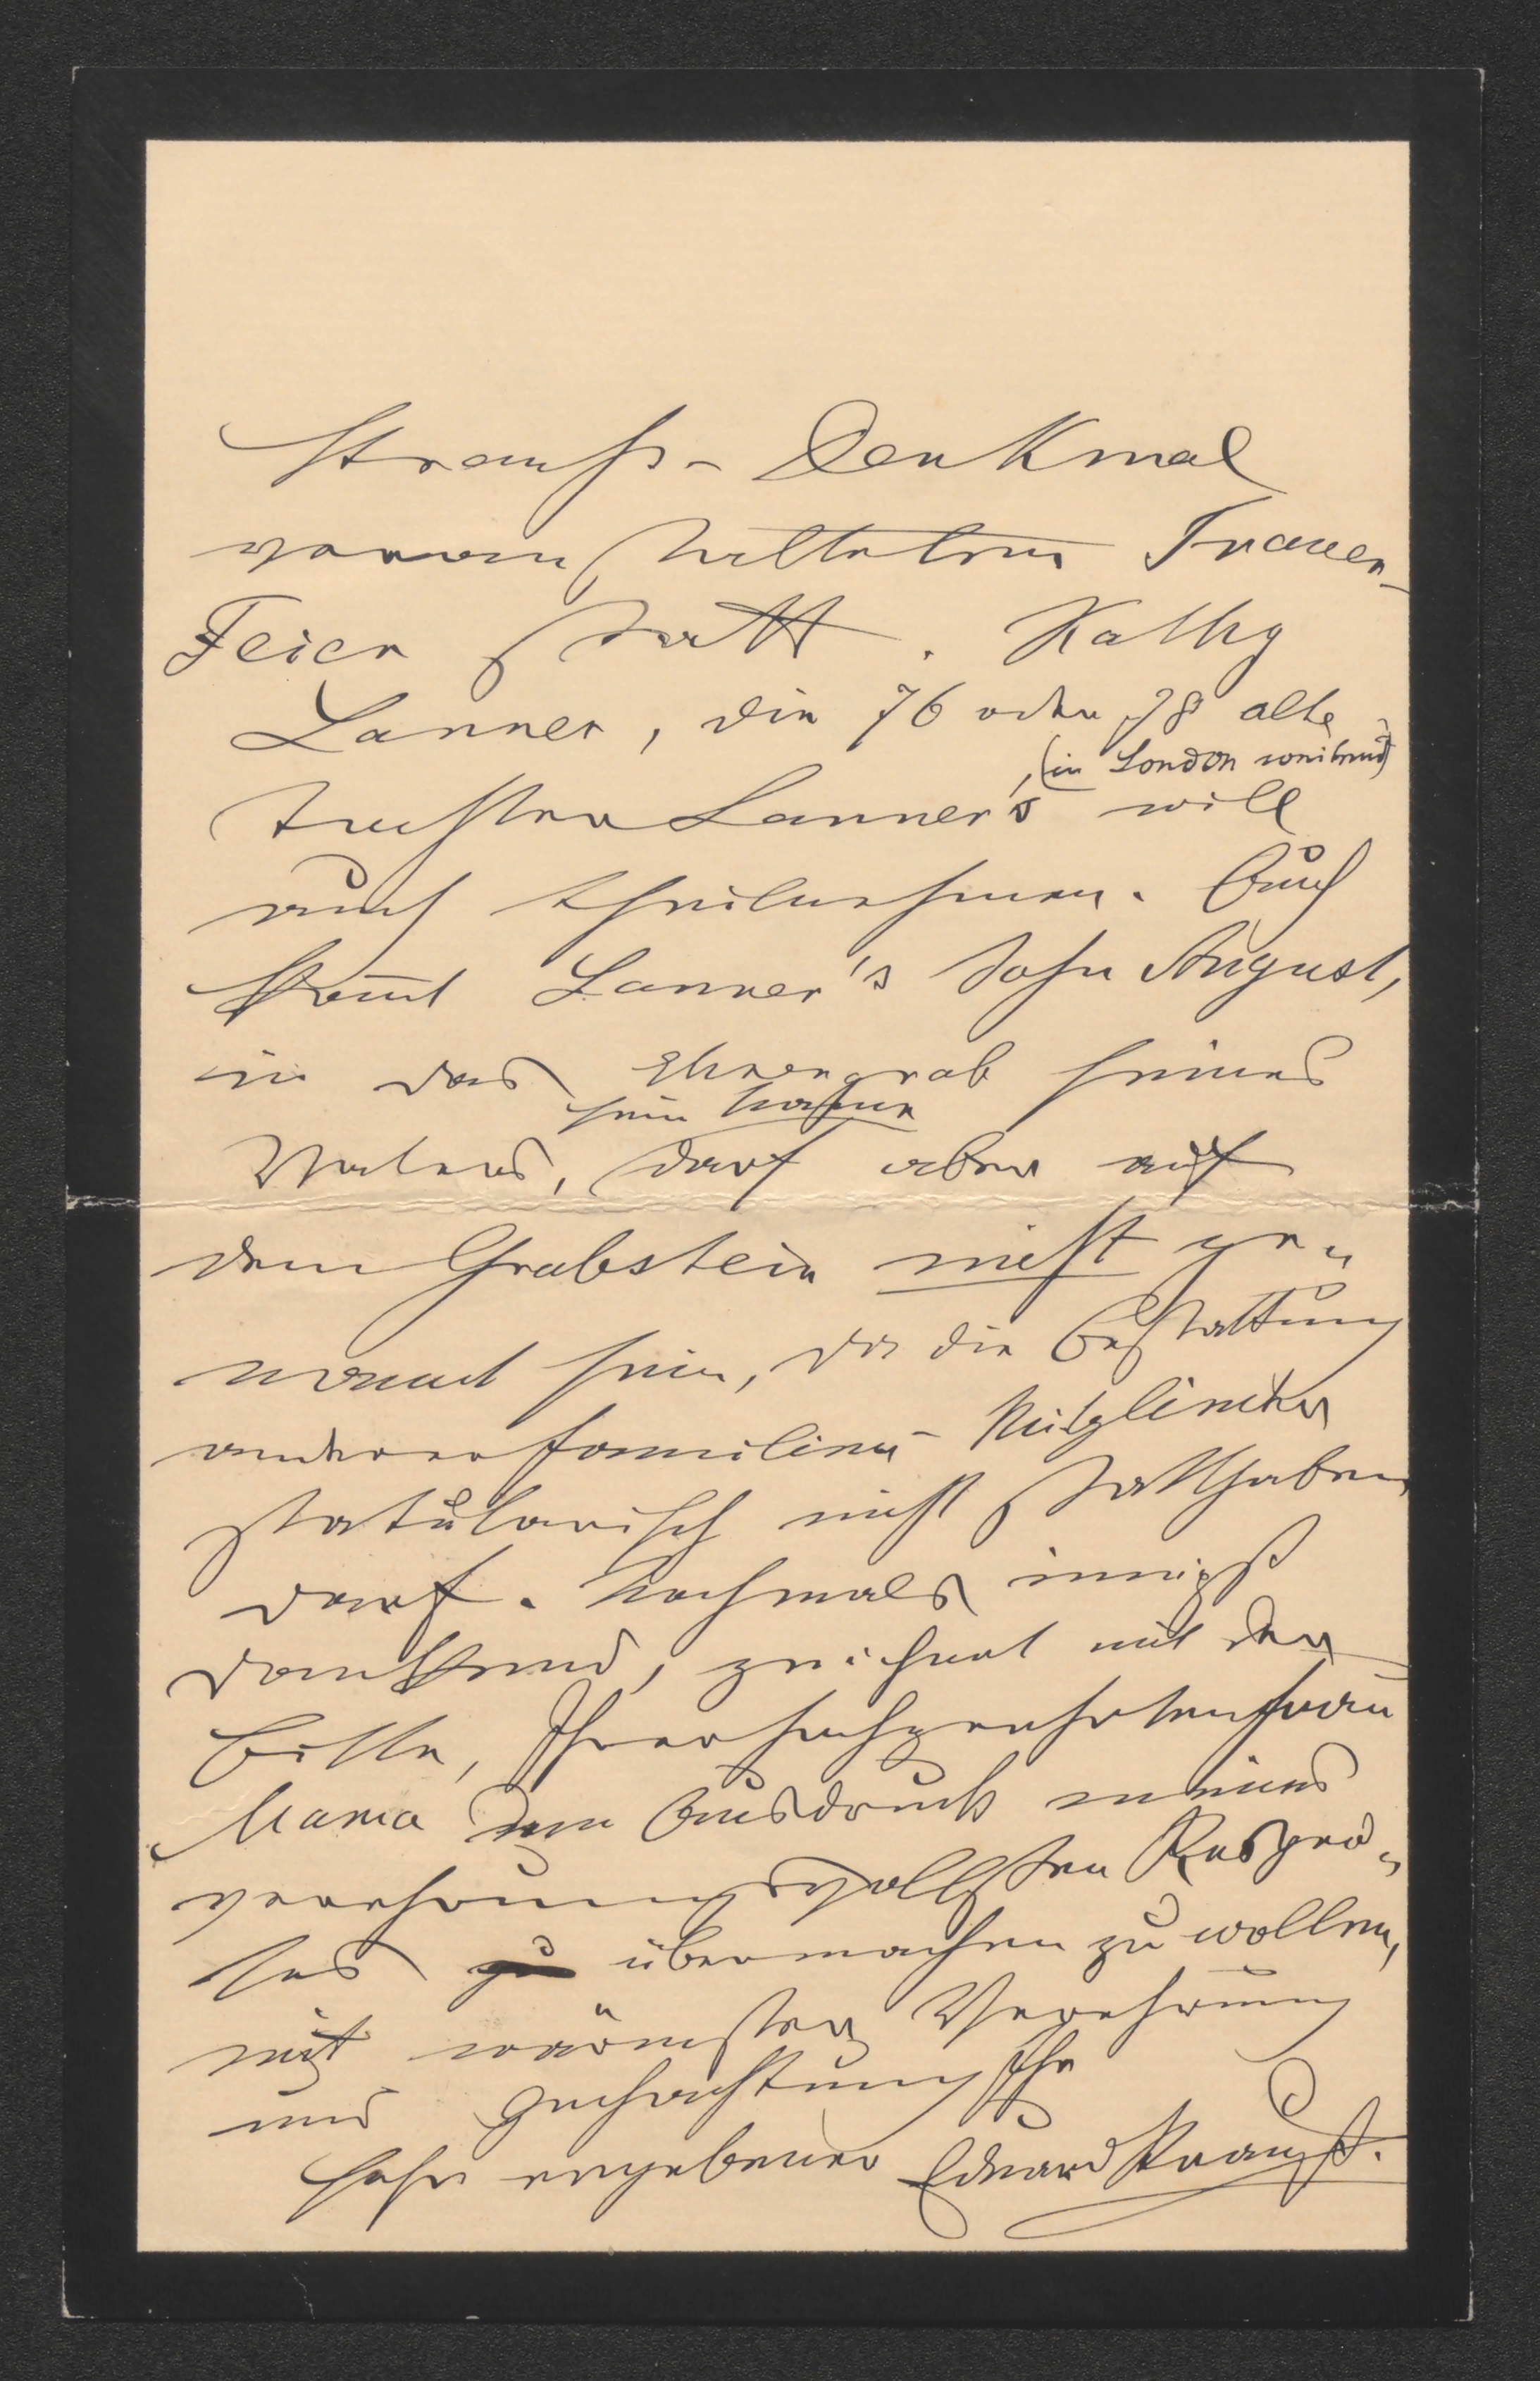 Strauß-Denkmal
veranstalteten Trauer-
Feier statt. Kathy
Lanner, die 76 oder 78 alte
(in London weilend)
Tochter Lanner's will
auch theilnehmen. Auch
kom̄t Lanner's Sohn August,
in das Ehrengrab seines
sein Name
Vaters, darf aber auf
dem Grabstein nicht ge„
nannt sein, da die Bestattung
anderer Familien-Mitglieder
statutarisch nicht statthaben
darf. Nochmals innigst
dankend, zeichnet mit der
Bitte, Ihrer hochgeehrten Frau
Mama den Ausdruck meines
verehrungsvollsten Respec„
tes zu übermachen zu wollen,
mit wärmster Verehrung
und Hochachtung Ihr
sehr ergebener Eduard Strauß.